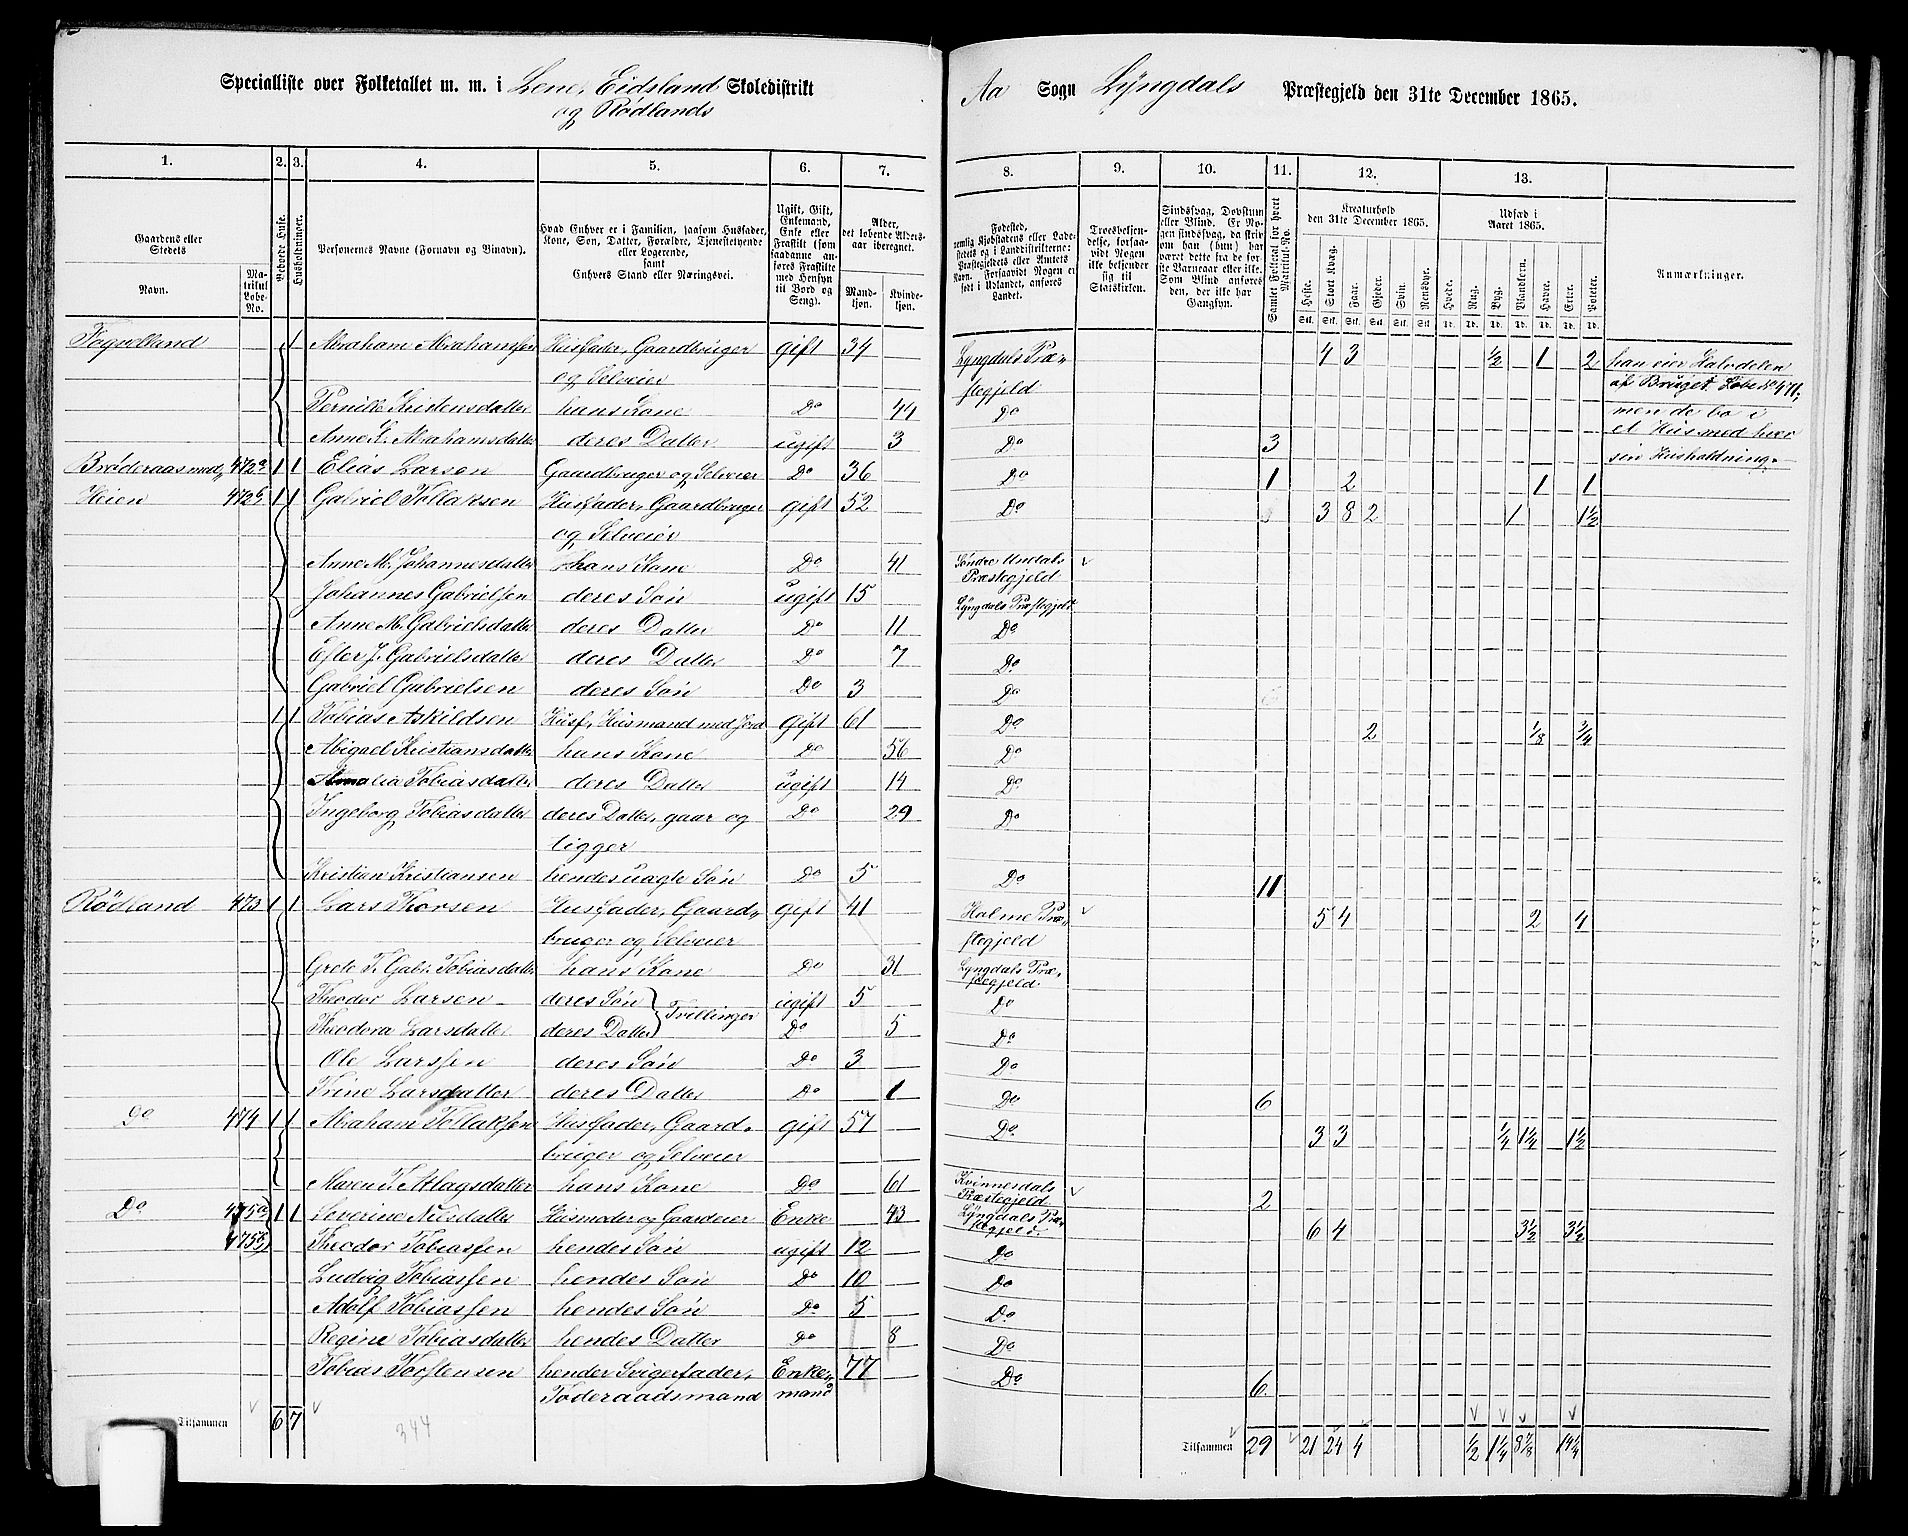 Specialliste over Folketallet m. m. i Lene, Eidsland Skoledistrikt
og Rødlands
Aa Sogn Lyngdals Præstegjeld den 31te December 1865.
1. 2. 3. 4. 5. 6. 7.
8. 9. 10. 11. 12. 13.
Gaardens eller Stedets
Navn.
Matrikul Løbe-No.
Beboede Huse.
Husholdninger.
Personernes Navne (Fornavn og Binavn).
Hvad Enhver er i Familien, saasom Husfader, Kone, Søn, Datter, Forældre, Tjenestetyende eller Logerende, samt Enhvers Stand eller Næringsvei.
Ugift, Gift, Enkemand, Enke eller Fraskilt (som saadanne anføres Fraskilte med Hensyn til Bord og Seng).
Alder, det løbende Aldersaar iberegnet.
Mandkjøn. Kvindekjøn.
Fødested,
Troesbekjendelse, forsaavidt Nogen ikke bekjender sig til Statskirken.
Sindssvag, Døvstum eller Blind.
Samlet Folketal for hvert Matrikul-No.
Kreaturhold den 31te December 1865.
Heste. Stort Kvæg. Faar. Gjeder. Svin. Rensdyr.
Udsæd i Aaret 1865.
Hvede. Rug. Byg. Blandkorn. Havre. Erter. Poteter.
Anmærkninger.
1 Abraham Abrahamsen Husfader, Gaardbruger gift 34 Lyngdals Præ- 4 3 ½ 1 2 han eier Halvdelen
og Selveier stegjeld af Bruget Løbe No 471,
Pernille Kristensdatter hans Kone Do 44 Do men de bo i
Anne S. Abrahamsdatter deres Datter ugift 3 Do 3 et Hus med hver
472a 1 1 Elias Larsen Gaardbruger og Selveier Do 36 Do 1 2 1 1 sin Husholdning.
Heien 1 1 Gabriel Tollaksen Husfader, Gaardbruger gift 52 Do 3 8 2 1 1½
og Selveier
Anne M. Johannesdatter hans Kone Do 41 Søndre Undals
Præstegjeld
Johannes Gabrielsen deres Søn ugift 15 Lyngdals Præstegjeld
Anne M. Gabrielsdatter deres Datter Do 11 Do
Ester J. Gabrielsdatter deres Datter Do 7 Do
Gabriel Gabrielsen deres Søn Do 3 Do
1 1 Tobias Askildsen Husf, Husmand med Jord gift 61 Do 2 ⅛ ¾
Abigael Kristiansdatter hans Kone Do 56 Do
Amalia Tobiasdatter deres Datter ugift 14 Do
Ingeborg Tobiasdatter deres Datter, gaar og Do 29 Do
tigger
Kristian Kristiansen hendes uægte Søn Do 5 Do 11
Rødland 473 1 1 Lars Thorsen Husfader, Gaard- gift 41 Halme Præ- 5 4 2 4
bruger og Selveier stegjeld
Grete T. Gabr. Tobiasdatter hans Kone Do 31 Lyngdals Præ-
stegjeld
Theodor Larsen deres Søn Tvillinger ugift 5 Do
Theodora Larsdatter deres Datter Do 5 Do
Ole Larssen deres Søn Do 3 Do
Trine Larsdatter deres Datter Do 1 Do 6
Do 474 1 1 Abraham Tollaksen Husfader, Gaard- gift 57 Do 3 3 ¼ 1¼ 1½
bruger og Selveier
Maren T. Atlagsdatter hans Kone Do 61 Kvinnesdals
Præstegjeld 2
Do 475a 1 1 Severine Nilsdatter Husmoder og Gaardeier Enke 43 Lyngdals Præ- 6 4 3½ 3½
stegjeld.
Theodor Tobiassen hendes Søn ugift 12 Do
Ludvig Tobiassen hendes Søn Do 10 Do
Adolf Tobiassen hendes Søn Do 5 Do
Regine Tobiasdatter hendes Datter Do 8 Do
Tobias Torstensen hendes Svigerfader, Enke- 77 Do 6
Føderaadsmand mand
Tilsammen 6 7 344
Tilsammen 29 21 24 4 ½ 1¼ 8⅞ 14¼